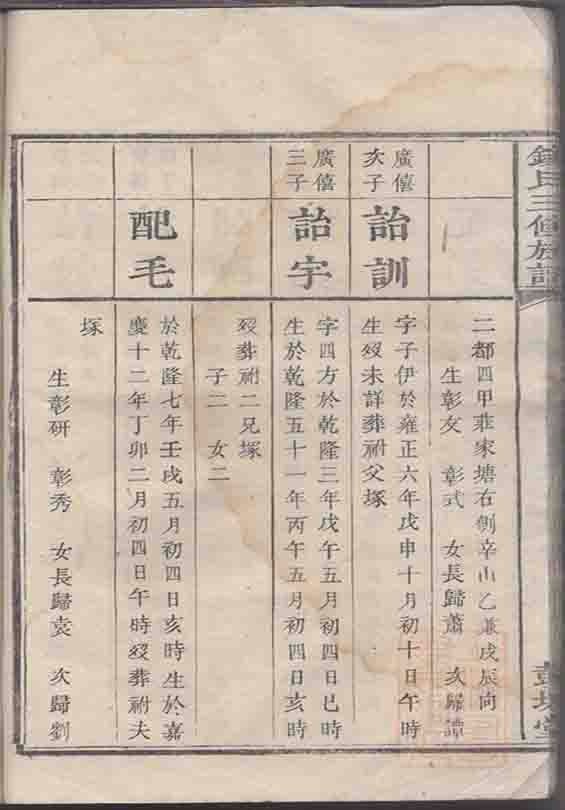 錢氏三修族譜
彭城堂
二都四甲莊家塘右側辛山乙兼戌辰向
生彰友 彰式 女長歸蕭 次歸譚
廣僖
次子
詒訓
字子伊於雍正六年戊申十月初十日午時
生歿未詳葬祔父塚
廣僖
三子
詒宇
字四方於乾隆三年戊午五月初四日巳時
生於乾隆五十一年丙午五月初四日亥時
歿葬祔二兄塚
子二 女二
配毛
於乾隆七年壬戌五月初四日亥時生於嘉
慶十二年丁卯二月初四日午時歿葬祔夫
塚
生彰研 彰秀 女長歸袁 次歸劉